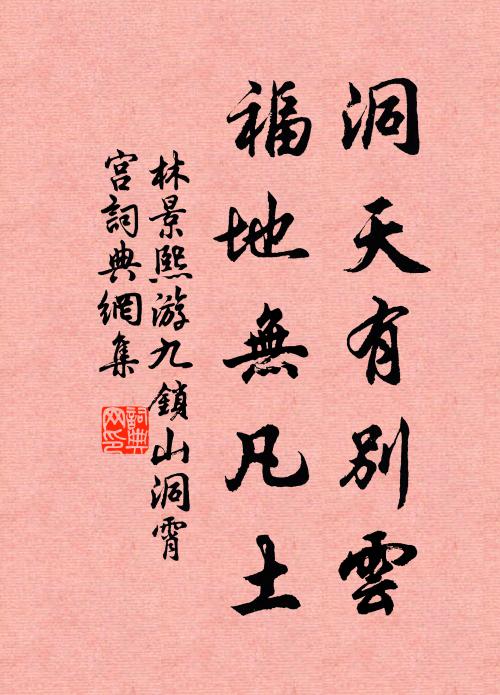 洞天有別雲
福地無凡土
林景熙游九鎖山洞霄
宮詞典網集
詞典网印